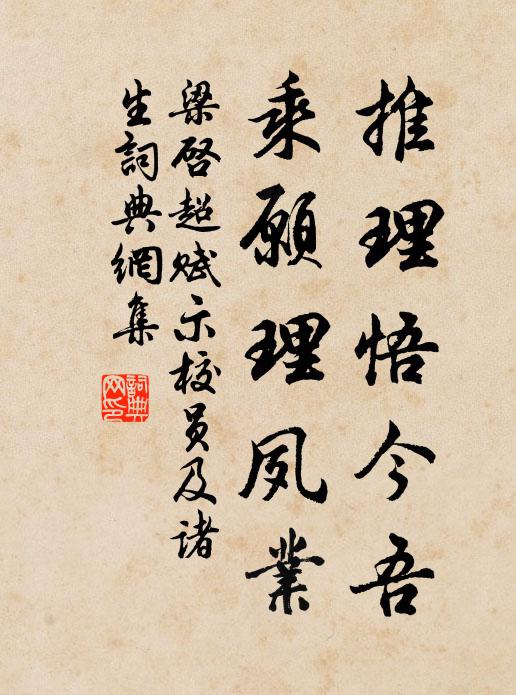 推理悟今吾
乘願理夙業
梁啓超賦示校员及諸
生詞典網集
詞典
网印